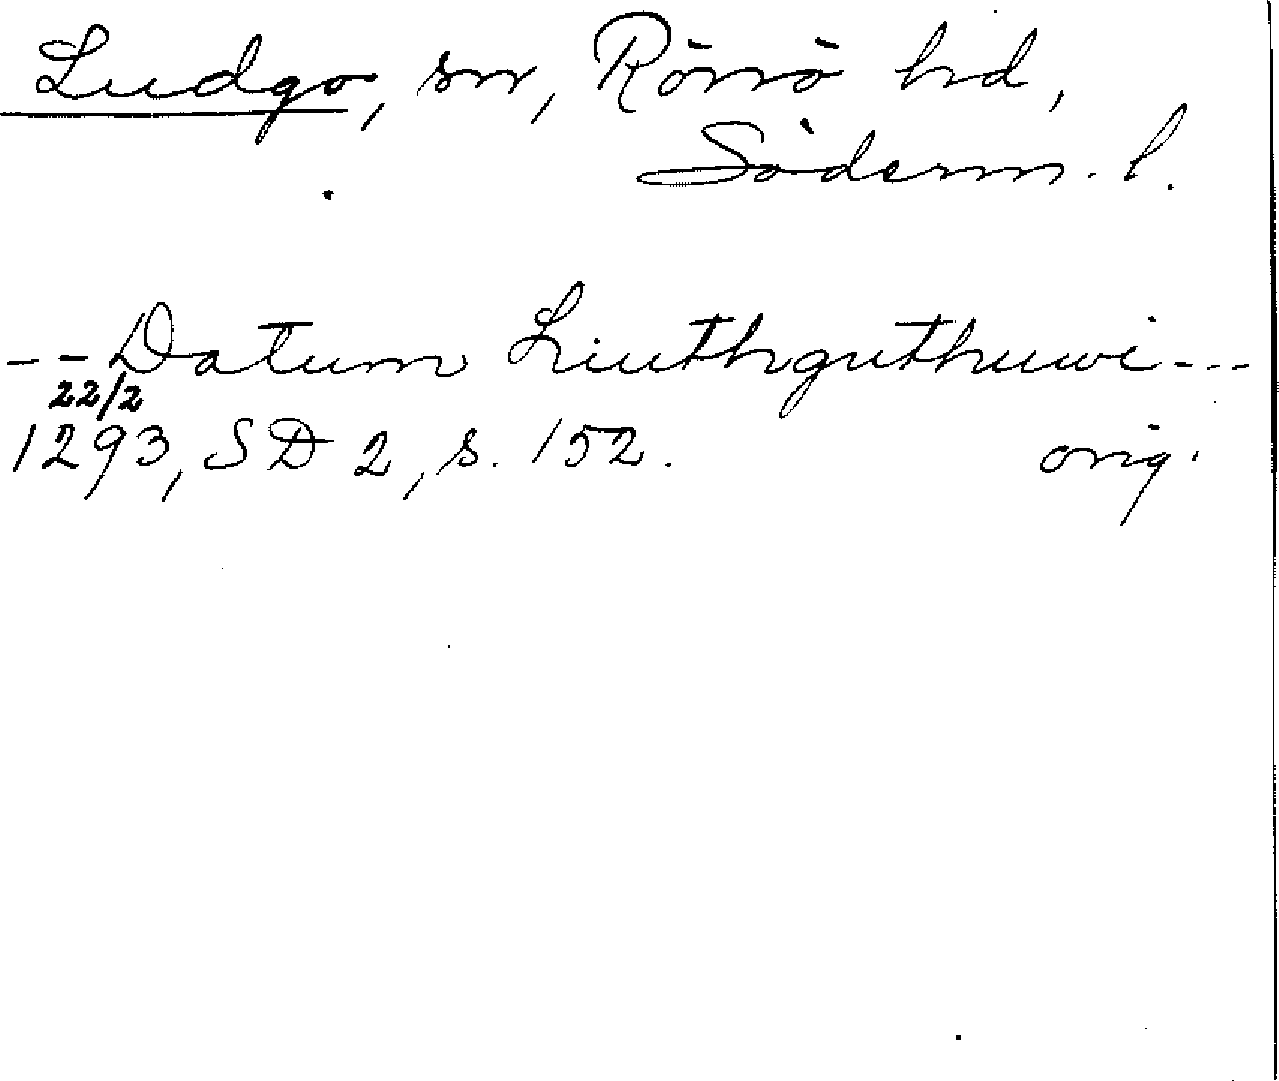 Ludgo, sn, Rönö hd,
Söderm. l.
-- Datum Liuthguthuwi ---
22/2
1293, SD 2, s. 152. orig.